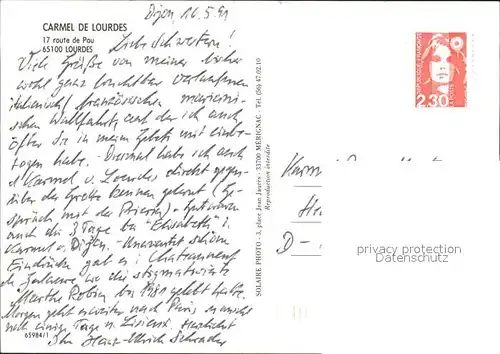 CARMEL DE LOURDES
17 route de Pau
65100 LOURDES
Dijon, 10.5.91
Liebe Schwestern!
Viele Grüße von meiner bisher
wohl ganz fruchtbar verlaufenen
italienisch französischen marianischen
Wallfahrt, auf der ich auch
öfter Sie in mein Gebet mit einbezogen
habe. Diesmal habe ich auch
d Karmel v. Lourdes direkt gegenüber
der Grotte kennen gelernt (Gespräch
mit der Priorin). Gut waren
auch die 3 Tage bei "Elisabeth" i.
Karmel v. Dijon. Unerwartet schöne
Eindrücke gab es i Chateauneuf
de Galaure wo die stigmatisierte
Marthe Robin bis 1981 gelebt hatte.
Morgen geht es weiter nach Paris
noch einige Tage n. Lisieux. Herzlichst
Ihr Hans-Ullrich Schrader
65984/1
SOLAIRE PHOTO - 3, place Jean Jaurès - 33700 MÉRIGNAC - Tél. (56) 47.02.10
Reproduction interdite
RÉPUBLIQUE FRANÇAISE
LA POSTE
2,30
D-
privacy protection
Datenschutz